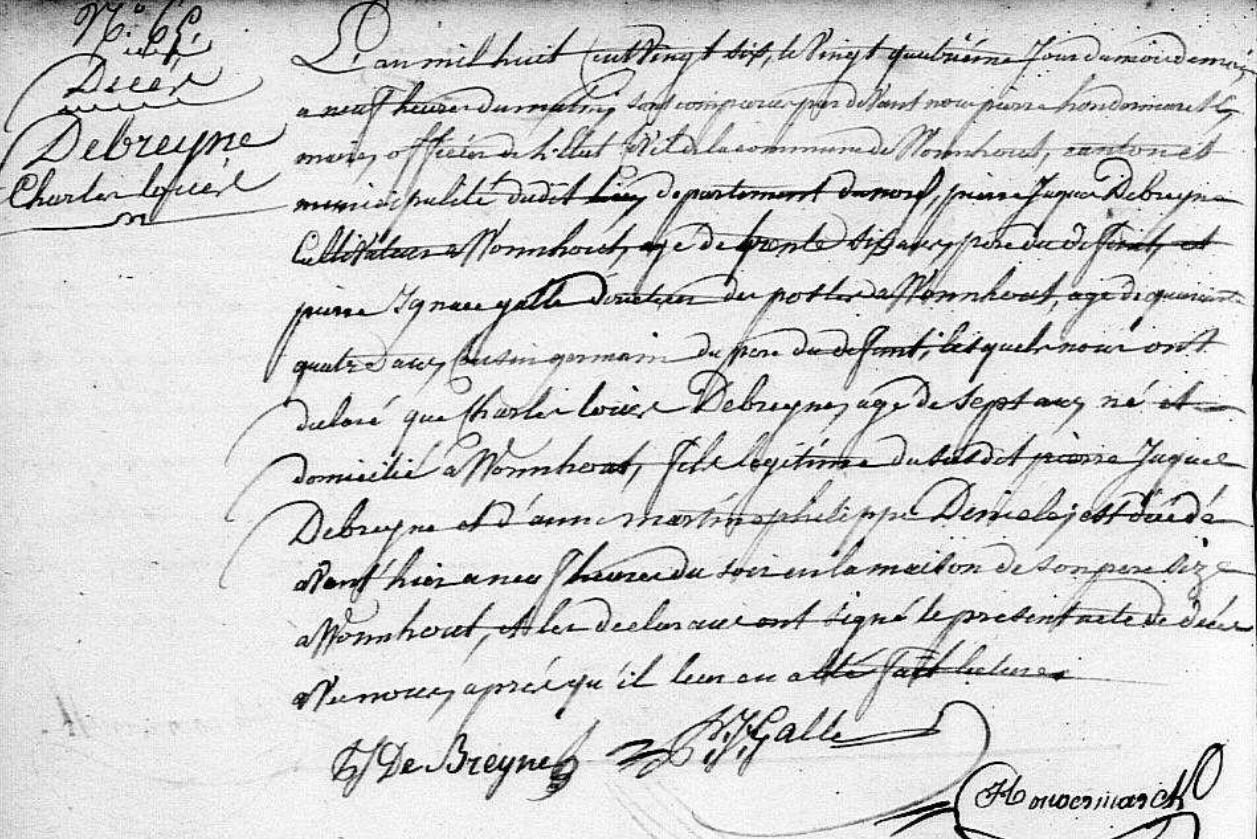 Décès
Debreyne
Charles louis
L'an mil huit cent Vingt six, le Vingt quatrième Jour du mois de mai
a neuf heures du matin, sont comparus par devant nous pierre
maire, officier de l'Etat Civil de la commune de Wormhout, canton et
municipalité dudit lieu, departement du nord, pierre Jaques Debreyne
Cultivateur a Wormhout, agé de trente six ans, pere du defunt, et
pierre Ignace galle directeur des postes a Wormhout, agé de quarante
quatre ans, Cousin germain du pere du defunt, lesquels nous ont
declaré que Charles louis Debreyne, agé de sept ans, né et
domicilié a Wormhout, fils legitime du susdit pierre Jaques
Debreyne et d'anne martine philippe est décédé
avant hier a neuf heures du soir en la maison de son pere size
a Wormhout, et les declarans ont signé le present acte de décès
avec nous, après qu'il leur en a été fait lecture.
PJ De Breyne P.J. Galle